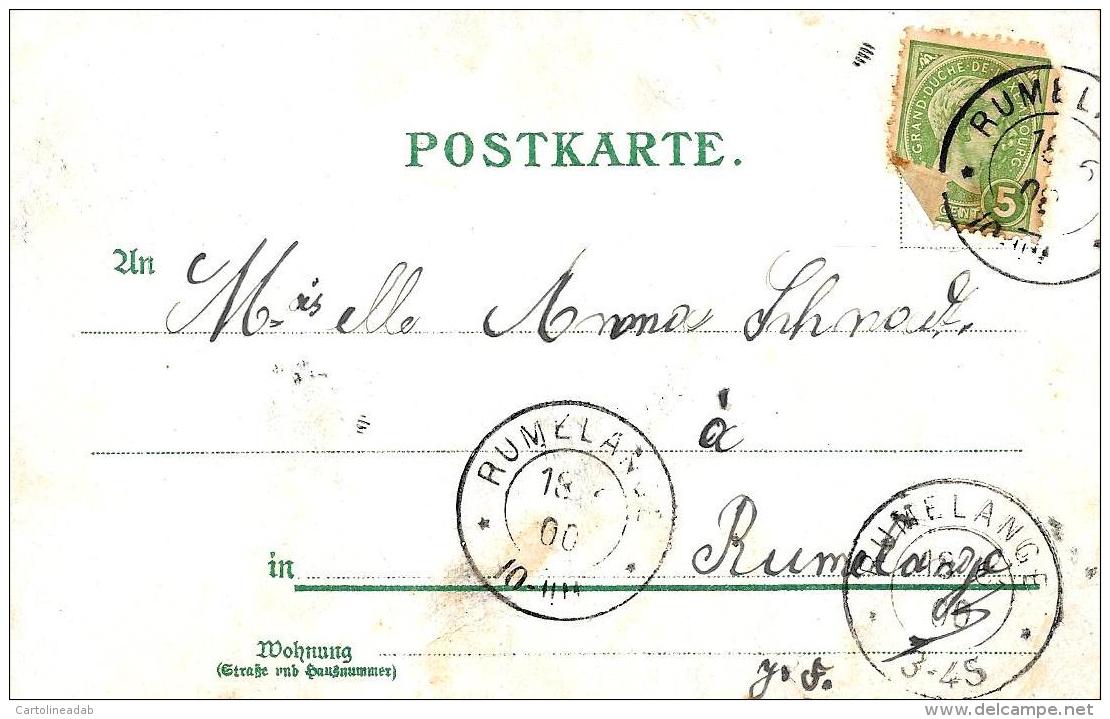 POSTKARTE.
GRAND·DUCHÉ·DE·LUXEMBOURG
5
CENT
RUMEL
18
An M.elle Anna Schrodt.
à
RUMELANGE
18
00
10-
in Rumelange
RUMELANGE
18
00
3-45
Wohnung
(Straße und Hausnummer)
J. F.
Cartolineadab
delcampe.net